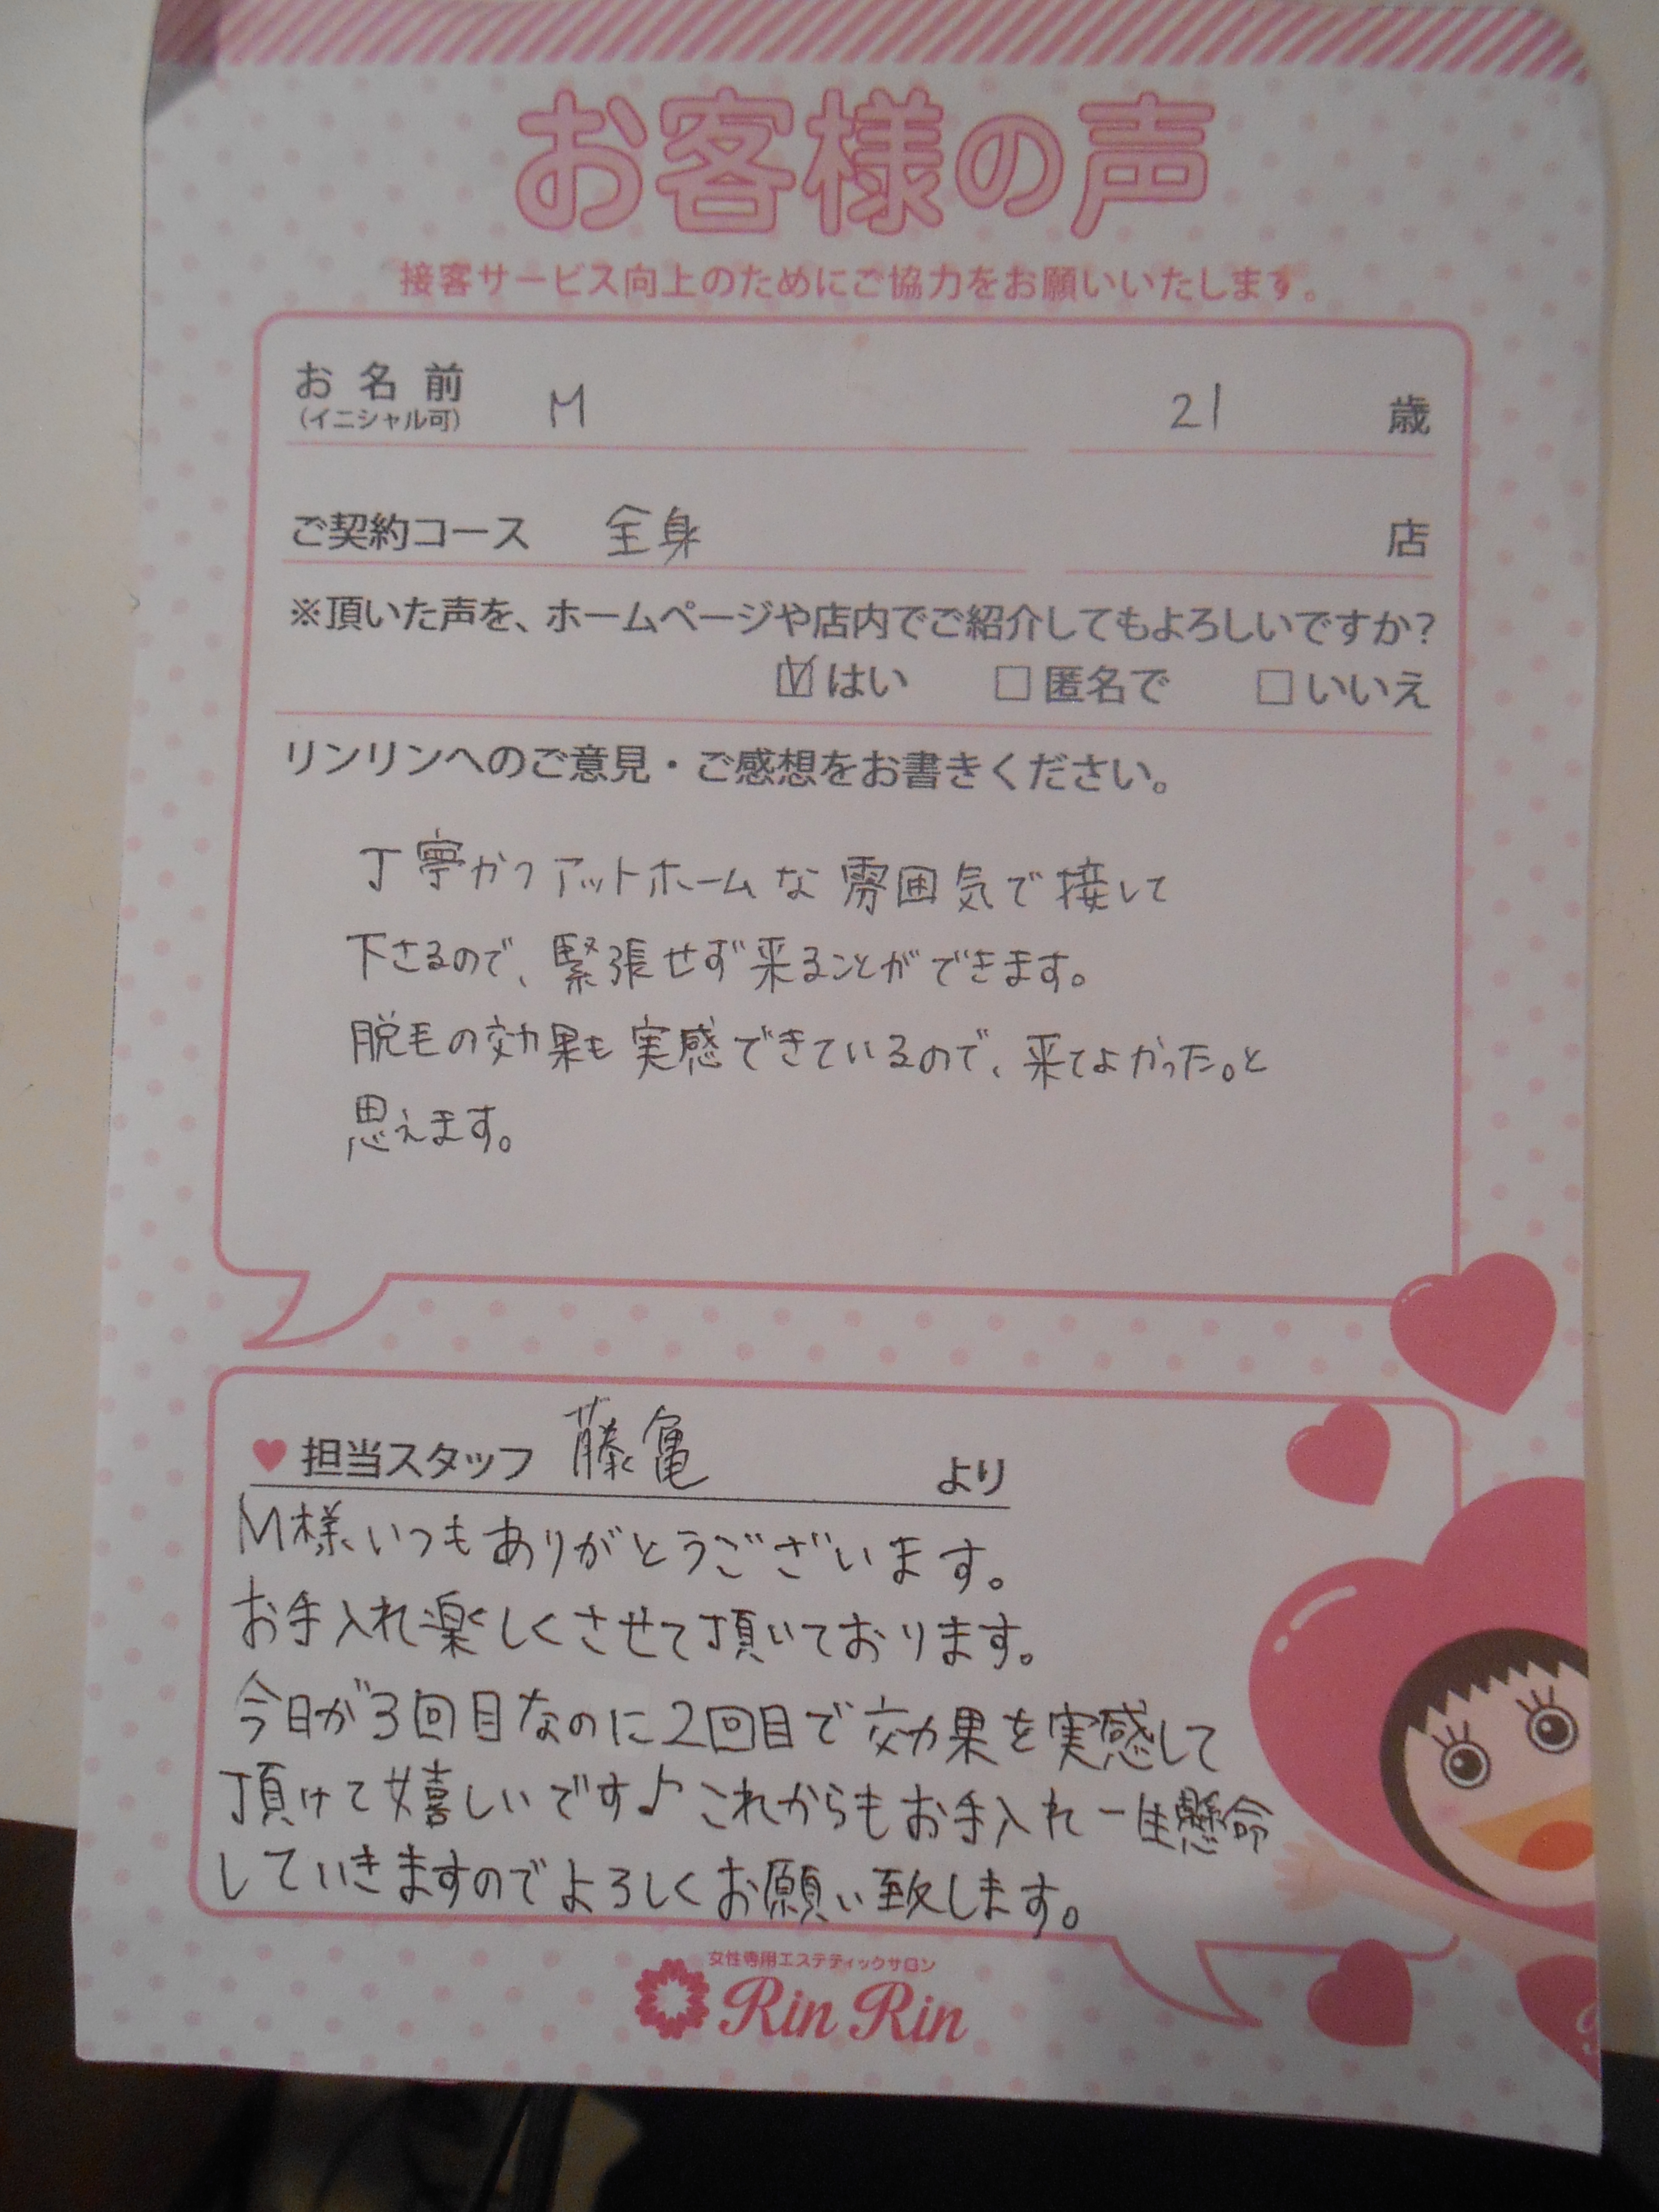 お客様の声
接客サービス向上のためにご協力をお願いいたします。
お名前 M 21 歳
(イニシャル可)
ご契約コース 全身 店
※頂いた声を、ホームページや店内でご紹介してもよろしいですか?
☑はい □匿名で □いいえ
リンリンへのご意見・ご感想をお書きください。
丁寧かつアットホームな雰囲気で接して
下さるので、緊張せず来ることができます。
脱毛の効果も実感できているので、来てよかった。と
思えます。
♥担当スタッフ 藤亀 より
M様いつもありがとうございます。
お手入れ楽しくさせて頂いております。
今日が3回目なのに2回目で効果を実感して
頂けて嬉しいです♪これからもお手入れ一生懸命
していきますのでよろしくお願い致します。
女性専用エステティックサロン
Rin Rin